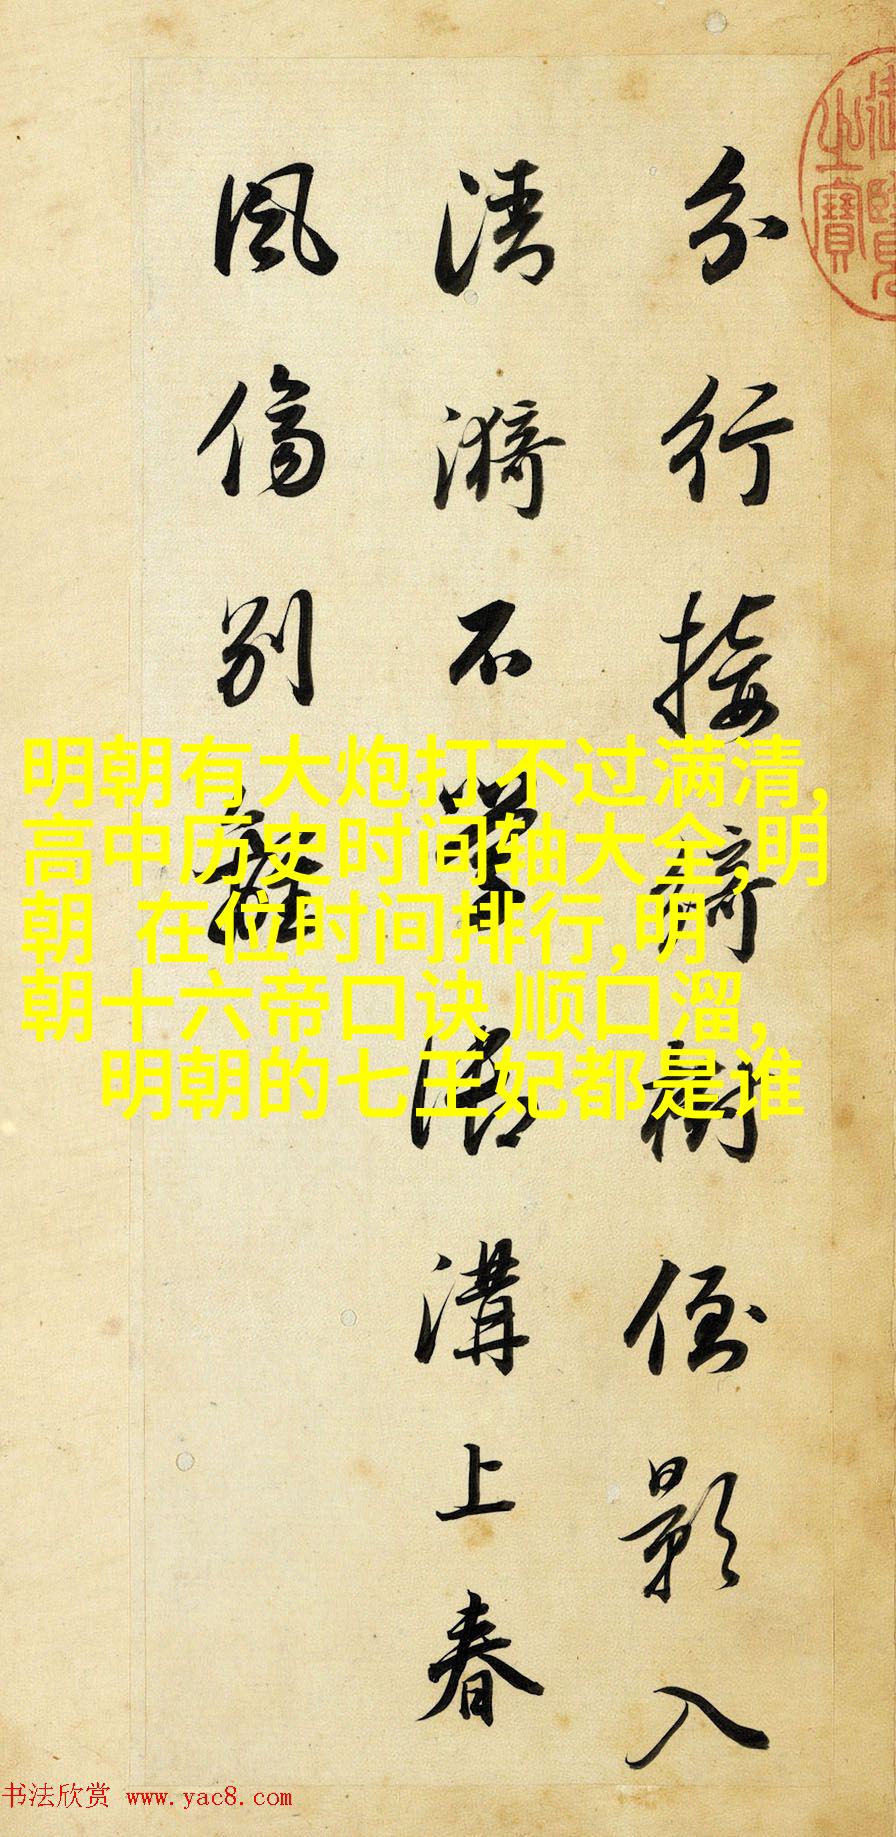 分行接綺樹倒影入
清漪不學御溝上春
風傷別離
御覽之寶
明朝有大炮打不过满清,
高中历史时间轴大全,明
朝 在位时间排行,明
朝十六帝口诀 顺口溜,
明朝的七王妃都是谁
书法欣赏 www.yac8.com